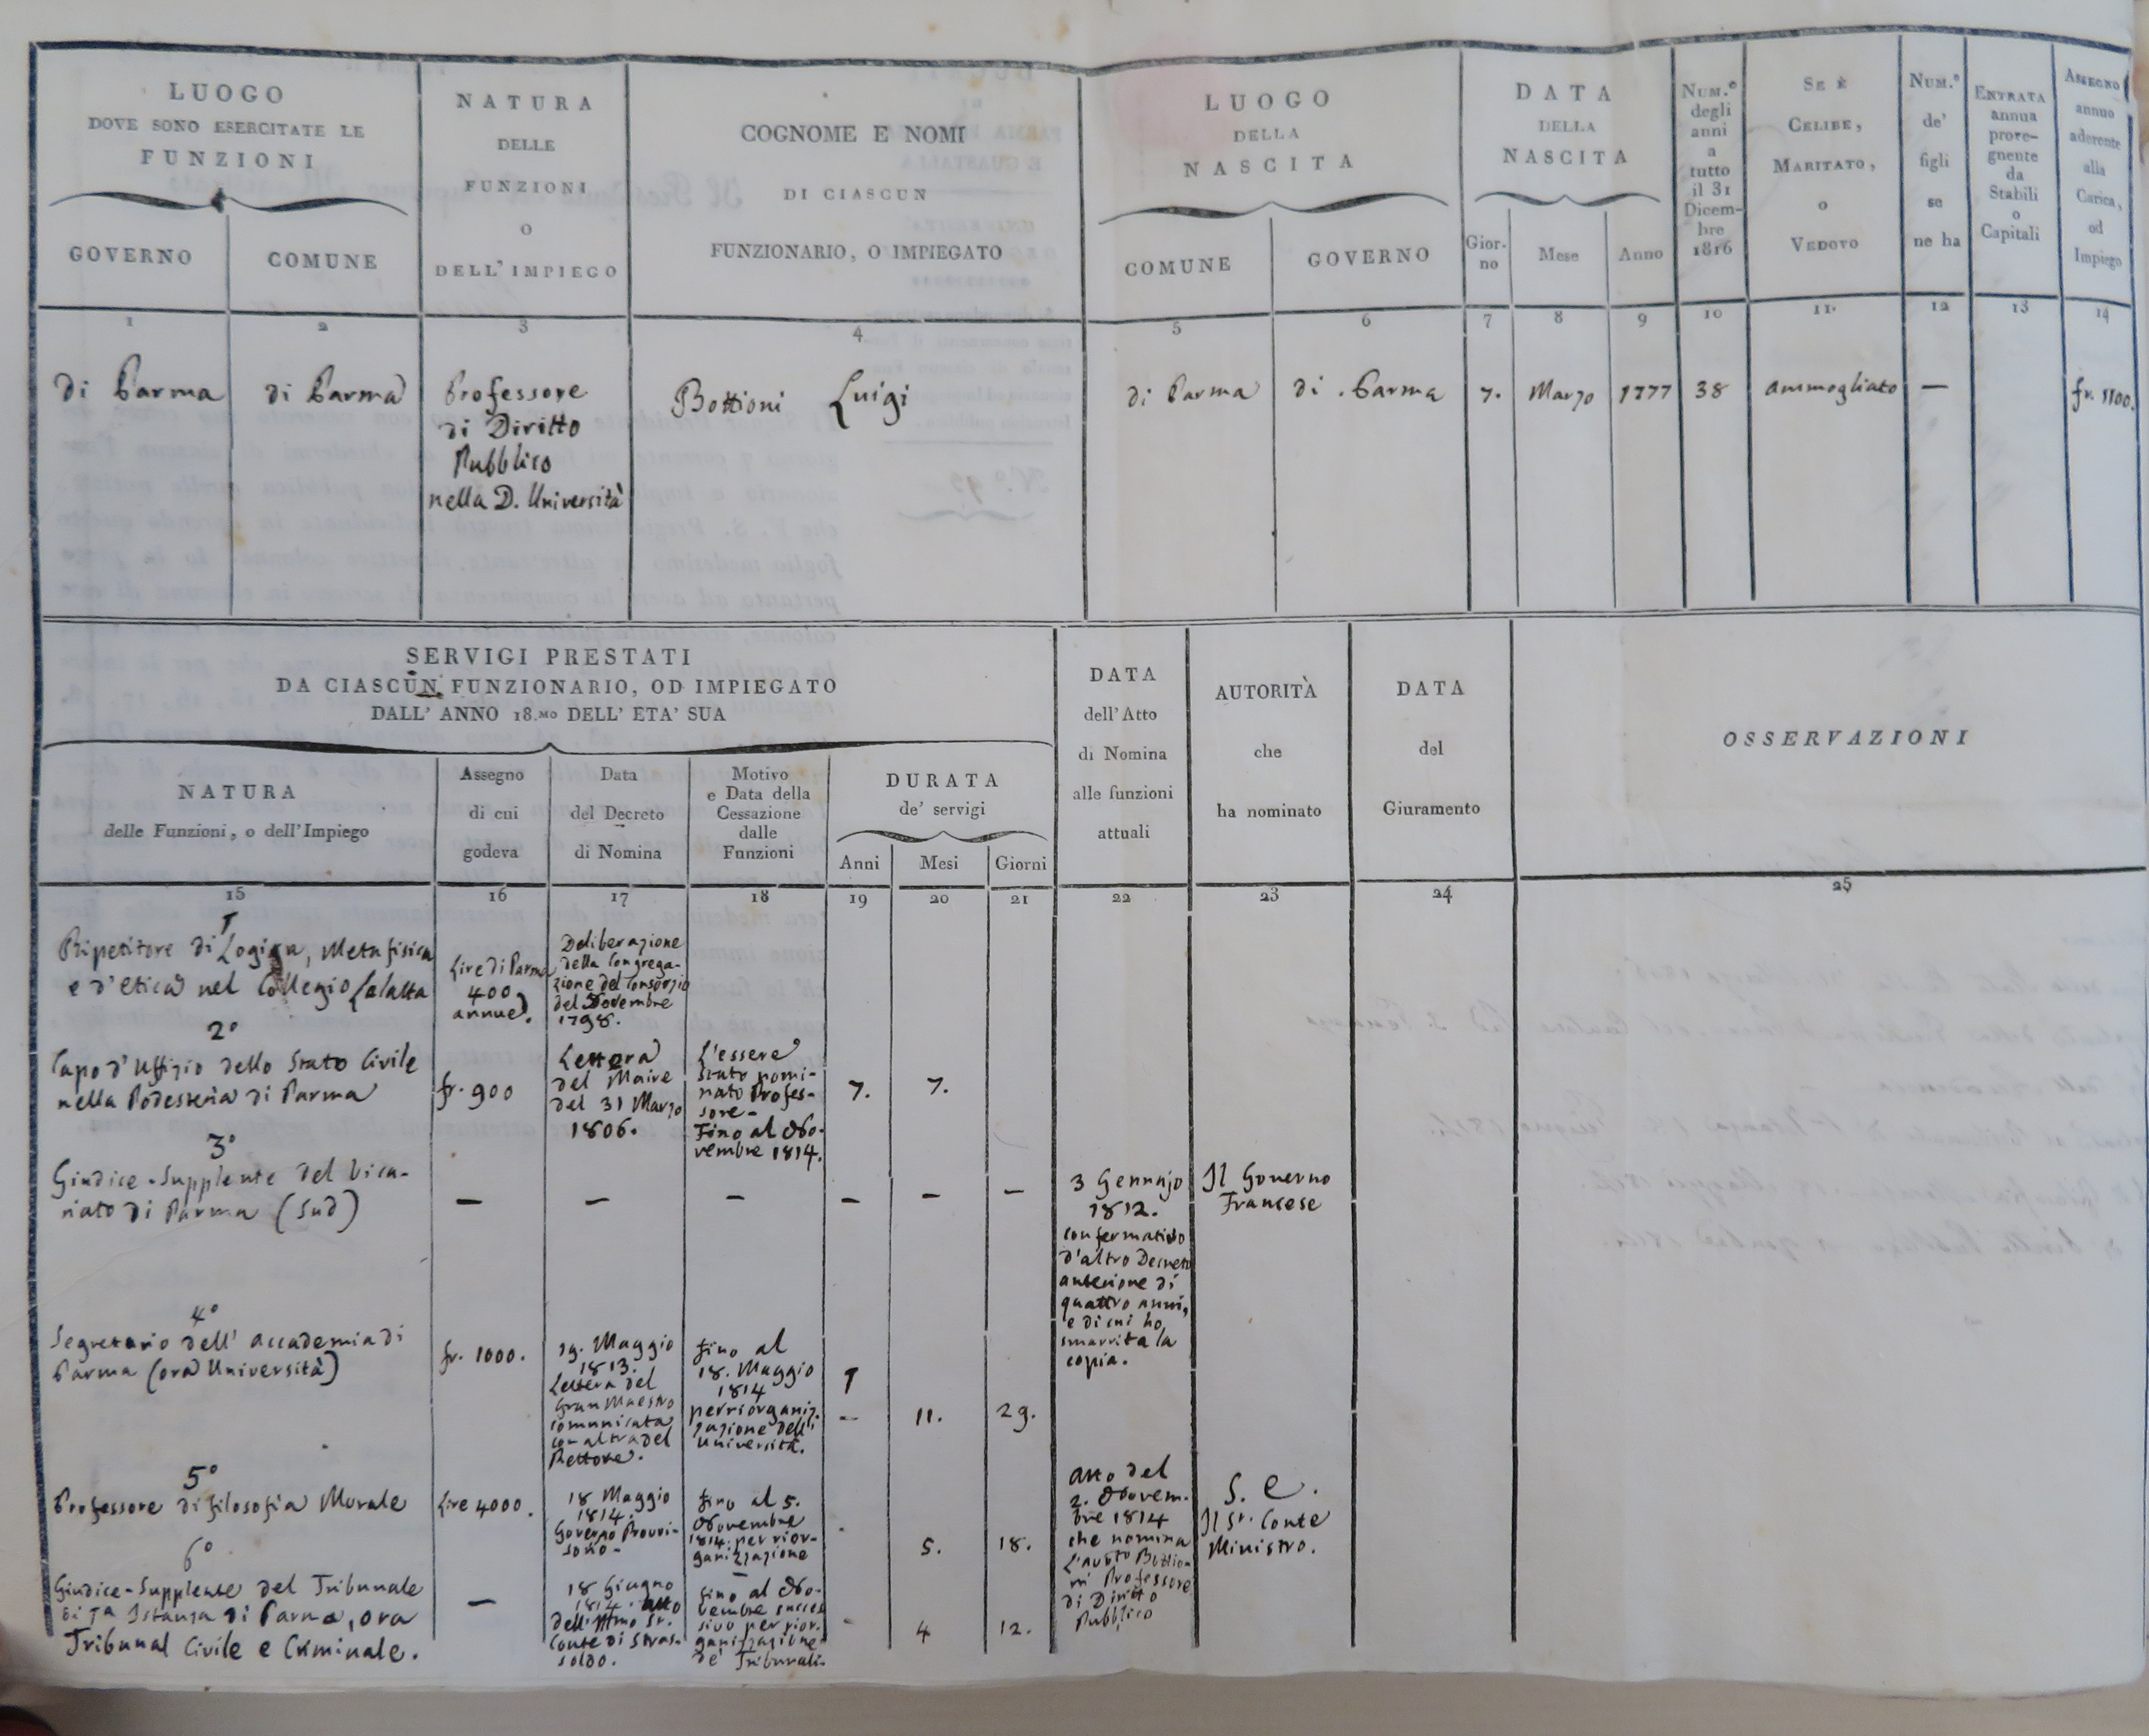 LUOGO
DOVE SONO ESERCITATE LE
FUNZIONI
GOVERNO
COMUNE
NATURA
DELLE
FUNZIONI
O
DELL' IMPIEGO
COGNOME E NOMI
DI CIASCUN
FUNZIONARIO, O IMPIEGATO
LUOGO
DELLA
NASCITA
COMUNE
GOVERNO
DATA
DELLA
NASCITA
Gior-
no
Mese
Anno
NUM.º
degli
anni
a
tutto
il 31
Dicem-
bre
1816
SE È
CELIBE,
MARITATO,
O
VEDOVO
NUM.º
de'
figli
se
ne ha
ENTRATA
annua
prove-
gnente
da
Stabili
o
Capitali
ASSEGNO
annuo
aderente
alla
Carica,
od
Impiego
1
2
3
4
5
6
7
8
9
10
11.
12
13
14
di Parma
di Parma
Professore
di Diritto
Pubblico
nella D. Università
Bottioni Luigi
di Parma
di Parma
7.
Marzo
1777
38
ammogliato
—
fr. 1100.
SERVIGI PRESTATI
DA CIASCUN FUNZIONARIO, OD IMPIEGATO
DALL' ANNO 18.MO DELL' ETA' SUA
NATURA
delle Funzioni, o dell'Impiego
Assegno
di cui
godeva
Data
del Decreto
di Nomina
Motivo
e Data della
Cessazione
dalle
Funzioni
DURATA
de' servigi
Anni
Mesi
Giorni
DATA
dell'Atto
di Nomina
alle funzioni
attuali
AUTORITÀ
che
ha nominato
DATA
del
Giuramento
OSSERVAZIONI
15
16
17
18
19
20
21
22
23
24
25
1
Ripetitore di Logica, Metafisica
e d'etica nel Collegio Lalatta
Lire di Parma
400
annue.
Deliberazione
della Congrega-
zione del Consorzio
del Novembre
1798.
2º
Capo d'Uffizio dello Stato Civile
nella Podesteria di Parma
fr. 900
Lettera
del Maire
del 31 Marzo
1806.
L'essere
stato nomi-
nato Profes-
sore-
Fino al No-
vembre 1814.
7.
7.
3º
Giudice-Supplente del Vica-
riato di Parma (Sud)
—
—
—
—
—
—
3 Gennajo
1812.
d'altro Decreto
anteriore di
quattro anni,
e di cui ho
smarrita la
copia.
Il Governo
Francese
4º
Segretario dell' accademia di
Parma (ora Università)
fr. 1000.
19. Maggio
1813.
Lettera del
Gran Maestro
comunicata
con altra del
Rettore.
fino al
18. Maggio
1814
per riorganiz-
zazione dell'
Università.
--
11.
29.
5º
Professore di filosofia Morale
Lire 4000.
18 Maggio
1814.
Governo Provvi-
sorio-
fino al 5.
Novembre
1814. per rior-
ganizzazione
5.
18.
Atto del
2. Novem-
bre 1814
che nomina
Bottio-
ni Professore
di Diritto
Pubblico
S. E.
Il Sr. Conte
Ministro.
6º
Giudice-Supplente del Tribunale
di 1a Istanza di Parma, ora
Tribunal Civile e Criminale.
—
18 Giugno
1814. Atto
dell'Ill.mo Sr.
Conte di Stras-
soldo.
fino al No-
vembre succes
sivo per rior-
ganizzazione
de' Tribunali.
-
4
12.